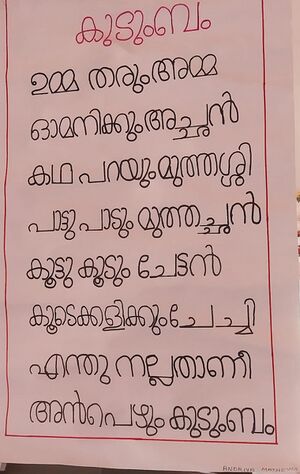 കുടുംബം
ഉമ്മ തരുംഅമ്മ
ഓമനിക്കുംഅച്ഛൻ
കഥ പറയുംമുത്തശ്ശി
പാട്ടു പാടും മുത്തച്ഛൻ
കൂട്ടു കൂടും ചേട്ടൻ
കൂടെക്കളിക്കുംചേച്ചി
എന്തു നല്ലതാണീ
അൻപെഴും കുടുംബം
ANDRIYA MATHEW